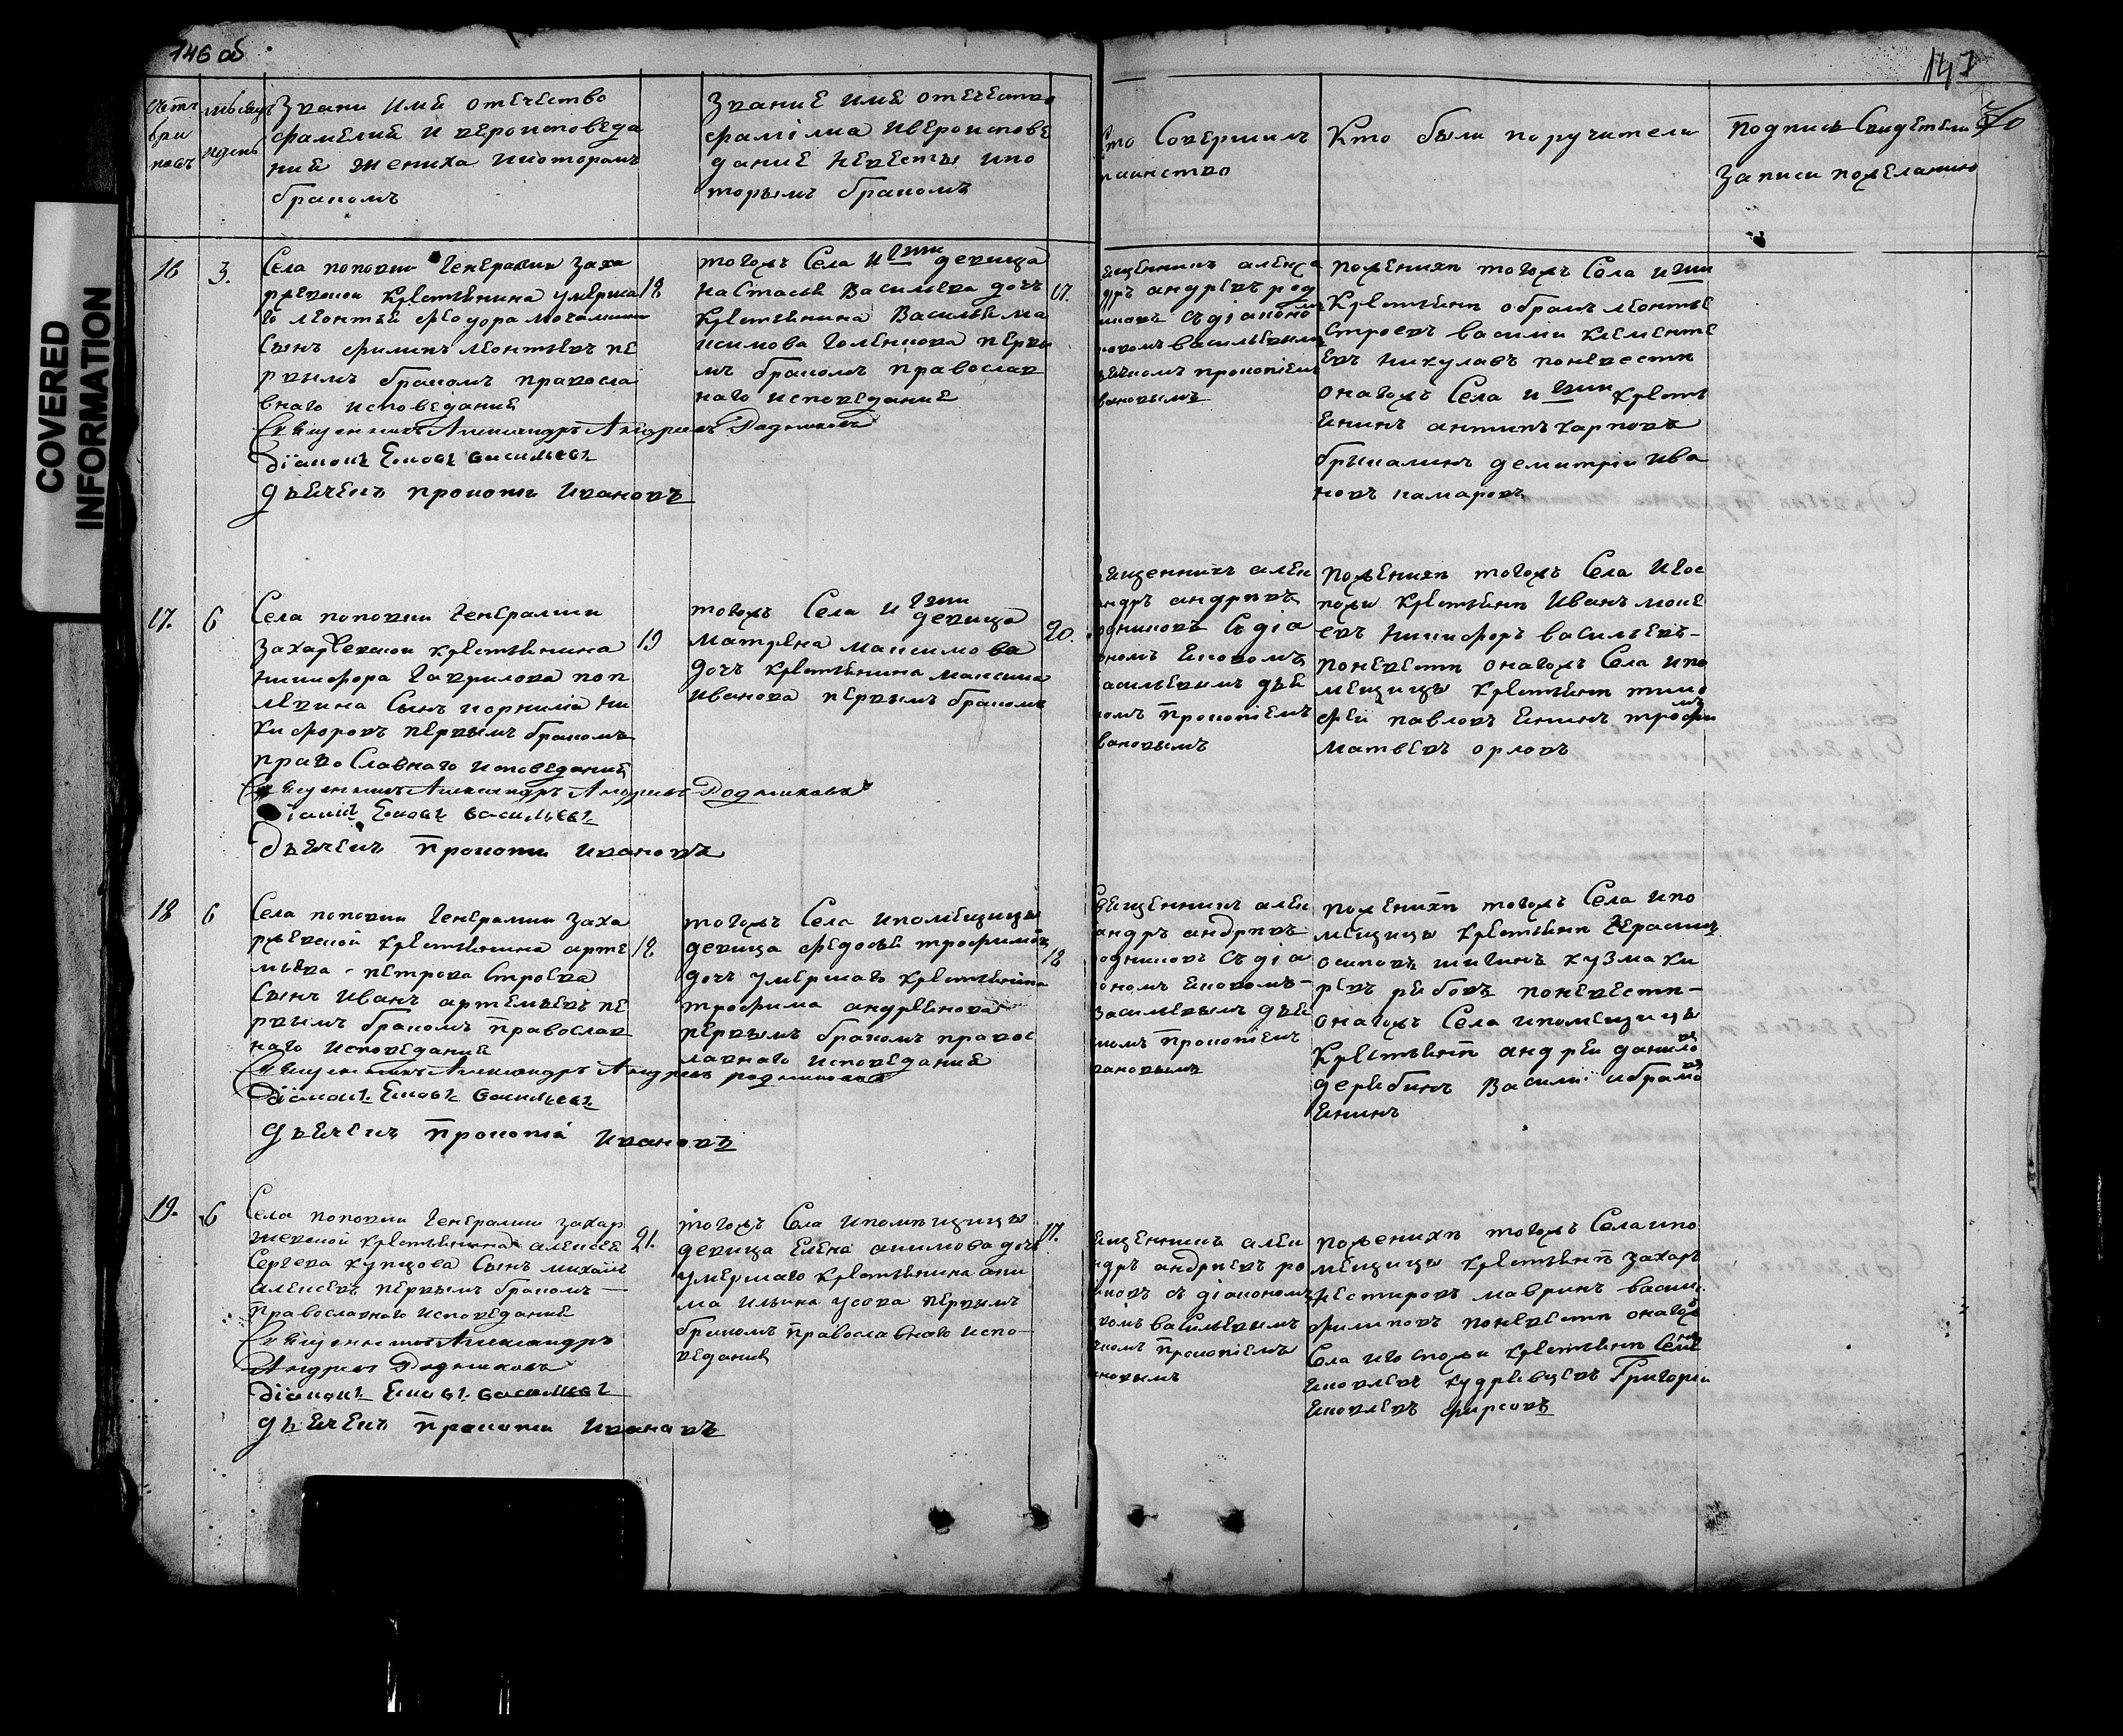 146 об
147
COVERED
INFORMATION
Счетъ
бра
ковъ
месецъ
и день
Звани имя отечество
фамелия и вероисповеда
ния жениха икоторымъ
бракомъ
Звание имя отечество
фамілиа ивероиспове
дание невесты ико
торымъ бракомъ
Кто Совершилъ
таинство
Кто были поручители
Подпись Свидетелей
Записи пожеланию
16
3.
Села поповки Генералши Заха
ржевской Крестьянина умерша
го леонтья феодора
Сынъ филипъ леонтьевъ пе
рвымъ бракомъ правосла
внаго исповедания
Священникъ Александръ Андреевъ Родниковъ
Діаконъ Яковъ Васильевъ
дьячекъ прокопи Ивановъ
18
тогожъ Села и Гжи девица
Настасья Васильева дочь
Крестьянина Василья Ма
ксимова Голенкова первы
мъ бракомъ православ
наго исповедания
17.
вященникъ алекса
дръ андревъ род
никовъ съ діаконо
мъ
ковомъ васильевымъ
ьячкомъ прокопіемъ
вановымъ
пожених тогожъ Села и Гжи
Крестьяне абрамъ леонтье
Строевъ василіи клементе
евъ никулавъ поневесте
онагожъ Села и Гжи Крест
янинъ антипъ карповъ
демитріи ива
новъ камаровъ
17.
6
Села поповки Генералши
Захаржевской крестьянина
никифора Гаврилова поп
левкина Сынъ корнилій ни
кифоровъ первымъ бракомъ
православнаго исповедания
Священникъ Александръ Андреевъ Родниковъ
Діаконъ Яковъ Васильевъ
Дьячекъ прокопи ивановъ
19
тогожъ Села и Гжи
девица
матрена максимова
дочь крестьянина максима
Иванова первымъ бракомъ
20.
вященникъ алек
андръ андревъ
одниковъ Съ діа
ономъ яковомъ
асильевымъ дья
комъ прокопіемъ
вановымъ
пожених тогожъ Села игос
пожи крестьяне Иванъ мокe
евъ никифоръ васильевъ-
поневесте онагожъ Села ипо
мещицы крестьяне тимо
фей павловъ
матвевъ орловъ
18
6
Села поповки Генералши Заха
ржевской крестьянина арте
мьева - петрова Строева
Сынъ Иванъ артемьевъ пе
рвымъ бракомъ православ
наго исповедания
Священникъ Александръ Андреевъ родниковъ
Діаконъ Яковъ Васильевъ
дьячекъ прокопій ивановъ
18
тогожъ Села ипомещицы
девица федосья трофимова
дочь умершаго крестьянина
трофима андреянова
первымъ бракомъ правос
лавнаго исповедания
18
вященникъ алек
андръ андревъ
одниковъ Съ діа
ономъ яковомъ-
васильевымъ дья
комъ прокопіемъ
вановымъ
пожених тогожъ Села ипо
мещицы крестьяне Герасимъ
осиповъ шигинъ кузма ки
ревъ рябовъ поневесте-
онагожъ Села ипомещицы
крестьяне андрей данило
въ
дерябинъ Василіи абрамо
въ
янинъ
19.
6
Села поповки Генералши захар
жевской крестьянина алексея
Сергеева купцова Сынъ михаилъ
алексеевъ первымъ бракомъ-
православнаго исповедания
Священникъ Александръ
Андреевъ Родниковъ
Діаконъ Яковъ Васильевъ
дьячекъ прокопи ивановъ
21.
тогожъ Села ипомещицы
девица Елена акимова дочь
умершаго крестьянина аки
ма ильина усова первымъ
бракомъ православнаго испо-
ведания
17.
ященникъ алек
ндръ андреевъ ро
иковъ съ діакономъ
комъ васильевымъ
комъ прокопіемъ
новымъ
пожених тогожъ Села ипо
мещицы крестьяне захаръ
нестировъ мавринъ васили
филиповъ поневесте онагож
Села игоспожи крестьяне Семе
нъ
яковлевъ кудрявцевъ Григории
яковлевъ фирсовъ